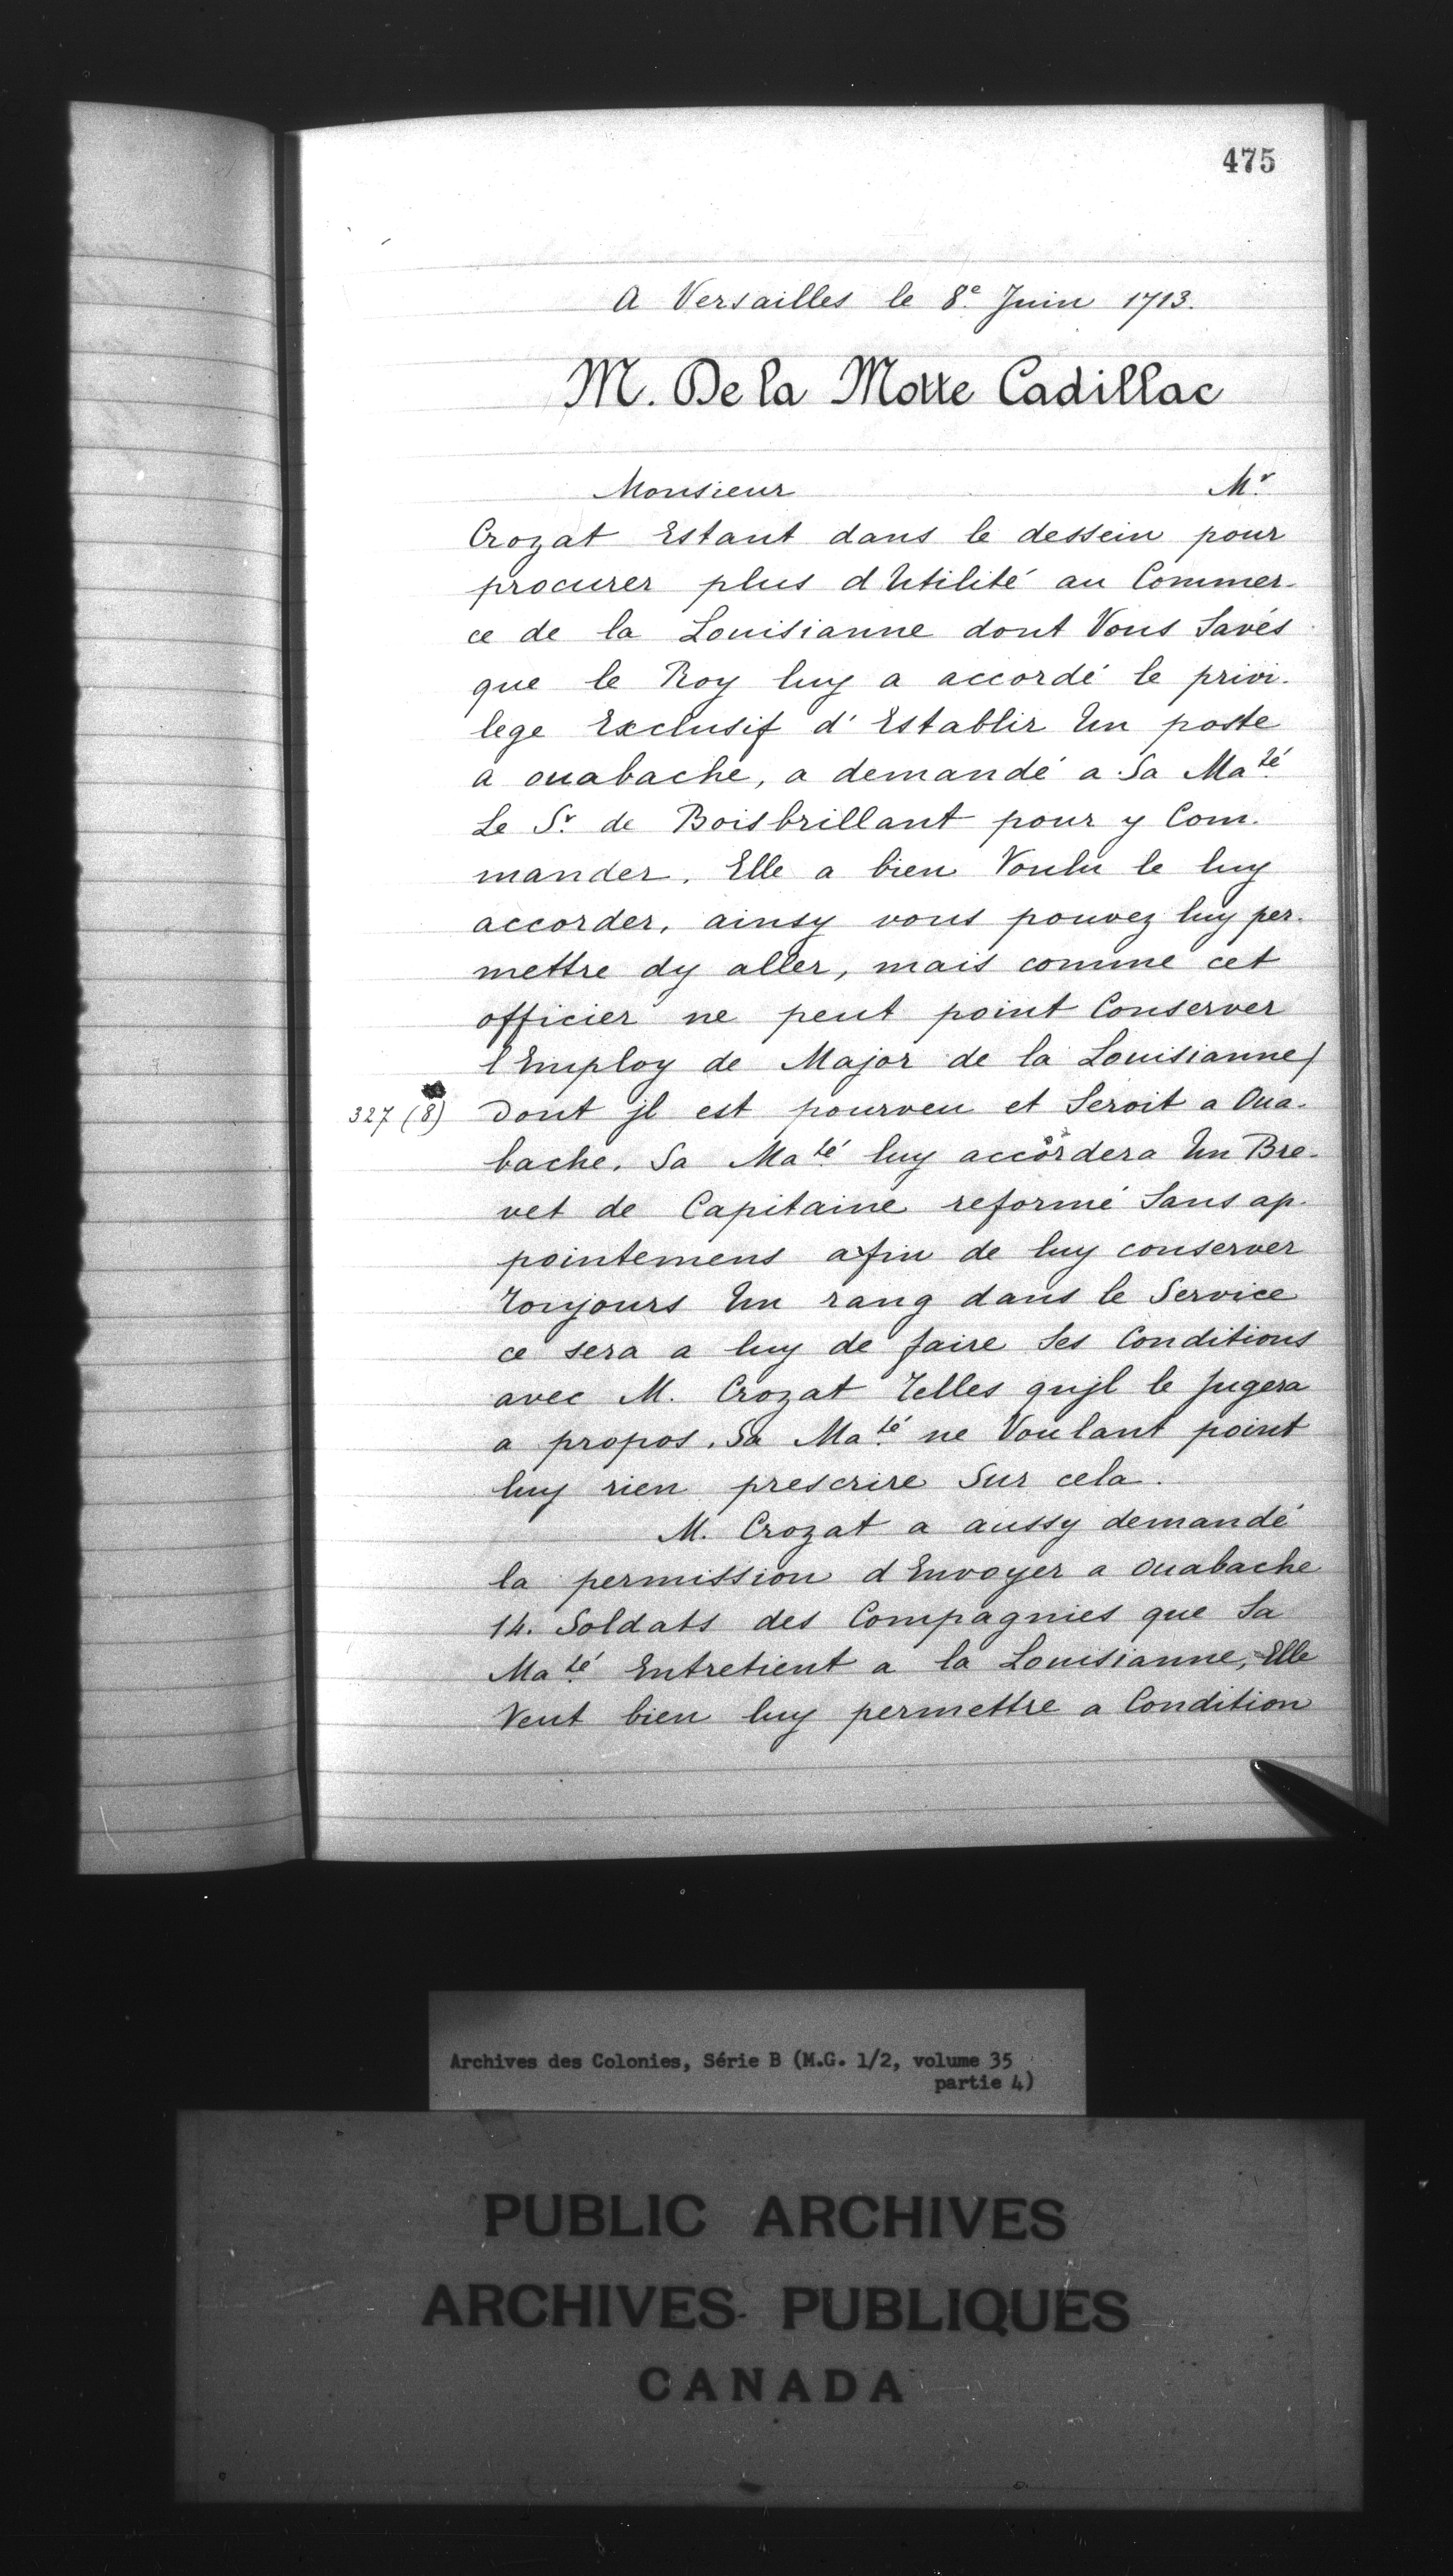 475
A Versailles le 8e Juin 1713.
M. De la Motte Cadillac
Monsieur Mr
Crozat Estant dans le dessein pour
procurer plus d'Utilité au Commer-
ce de la Louisianne dont Vous Savés
que le Roy luy a accordé le privi-
lege Exclusif d'Establir Un poste
a ouabache, a demandé a Sa Maté
Le Sr de Boisbrillant pour y Com-
mander. Elle a bien Voulu le luy
accorder, ainsy vous pouvez luy per-
mettre dy aller, mais comme cet
officier ne peut point Conserver
l'Employ de Major de la Louisianne/
327 (8) Dont jl est pourveu et Seroit a Oua-
bache. Sa Maté luy accordera Un Bre-
vet de Capitaine reformé Sans ap-
pointemens afin de luy conserver
Toujours Un rang dans le Service
ce sera a luy de faire Ses Conditions
avec M. Crozat Telles qujl le Jugera
a propos. Sa Maté ne Voulant point
luy rien prescrire Sur cela.
M. Crozat a aussy demandé
la permission d'Envoyer a Ouabache
14. Soldats des Compagnies que Sa
Maté Entretient a la Louisianne, Elle
Veut bien luy permettre a Condition
Archives des Colonies, Série B (M.G. 1/2, volume 35
partie 4)
PUBLIC ARCHIVES
ARCHIVES PUBLIQUES
CANADA